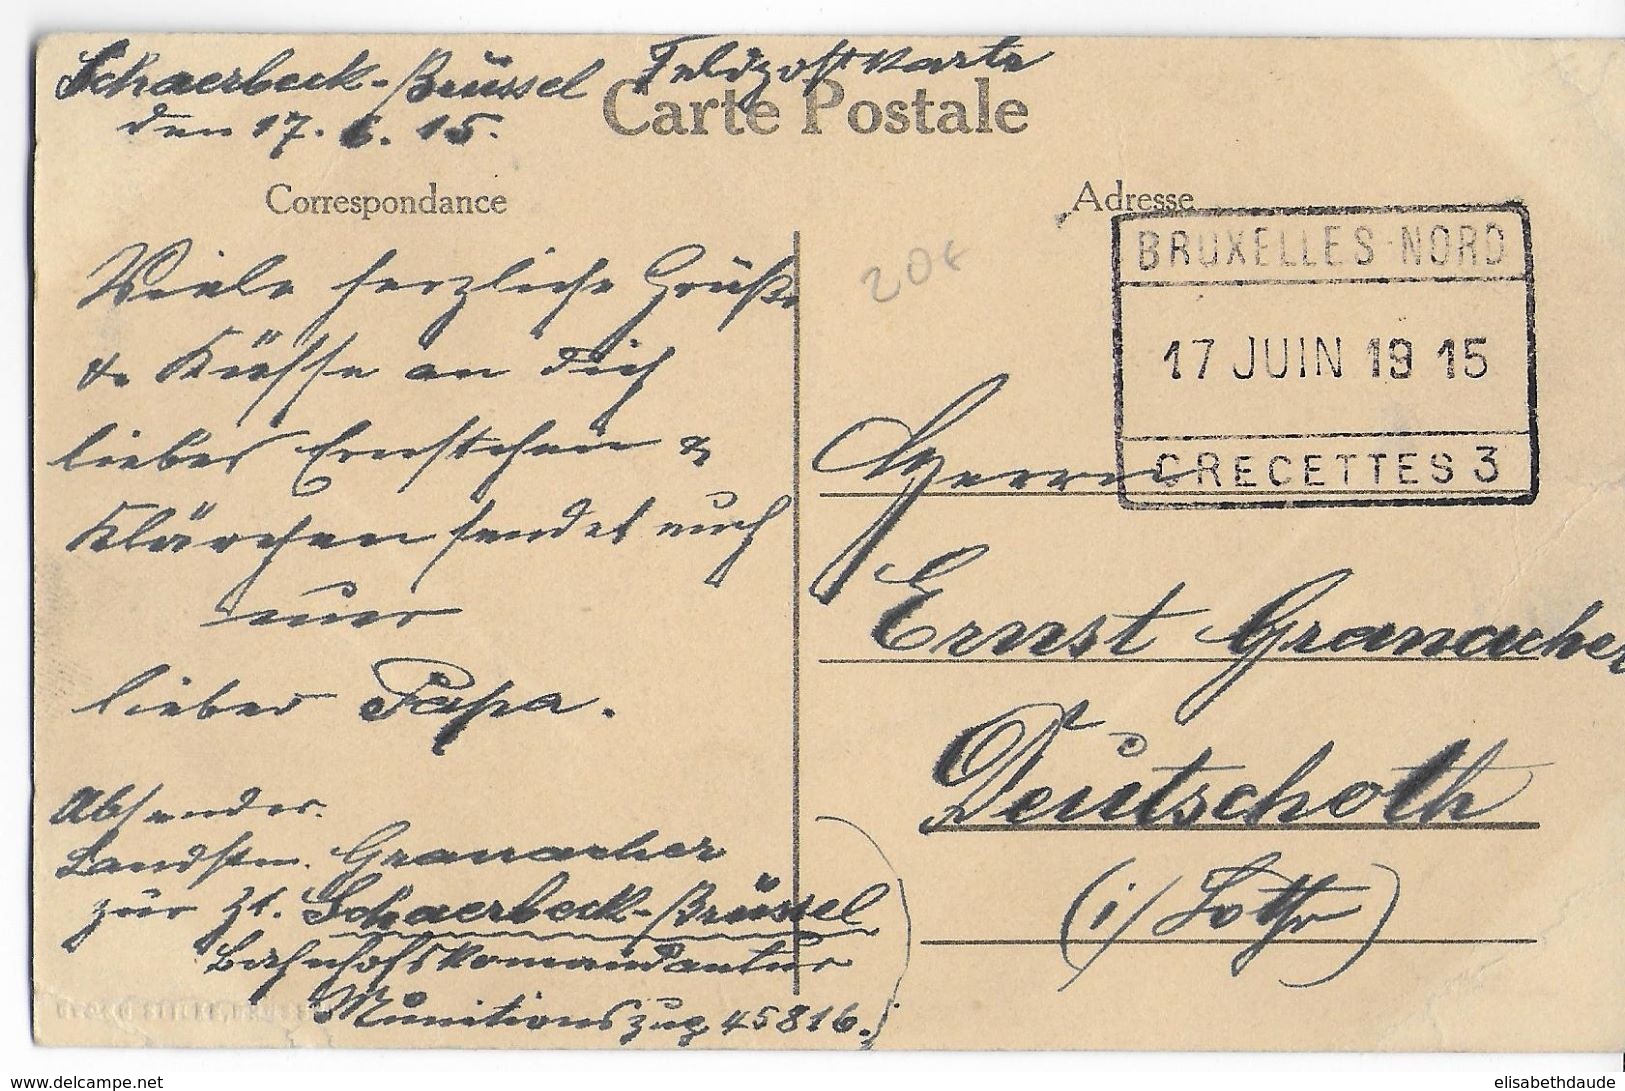 Schaerbeck-Brüssel Feldpostkarte
den 17. 6. 15.
Carte Postale
Correspondance
Adresse
Viele herzliche Grüße
& Küsse an Dich
liebes Ernstchen &
Klärchen sendet euch
euer
lieber Papa.
Absender.
Landstm. Granacher
zur Zt. Schaerbeck-Brüssel
Bahnhofskommandantur
Munitionszug 45816.
20€
BRUXELLES-NORD
17 JUIN 1915
RECETTES 3
Herrn
Ernst Granacher
Deutschoth
(i/Lothr)
delcampe.net
elisabethdaude